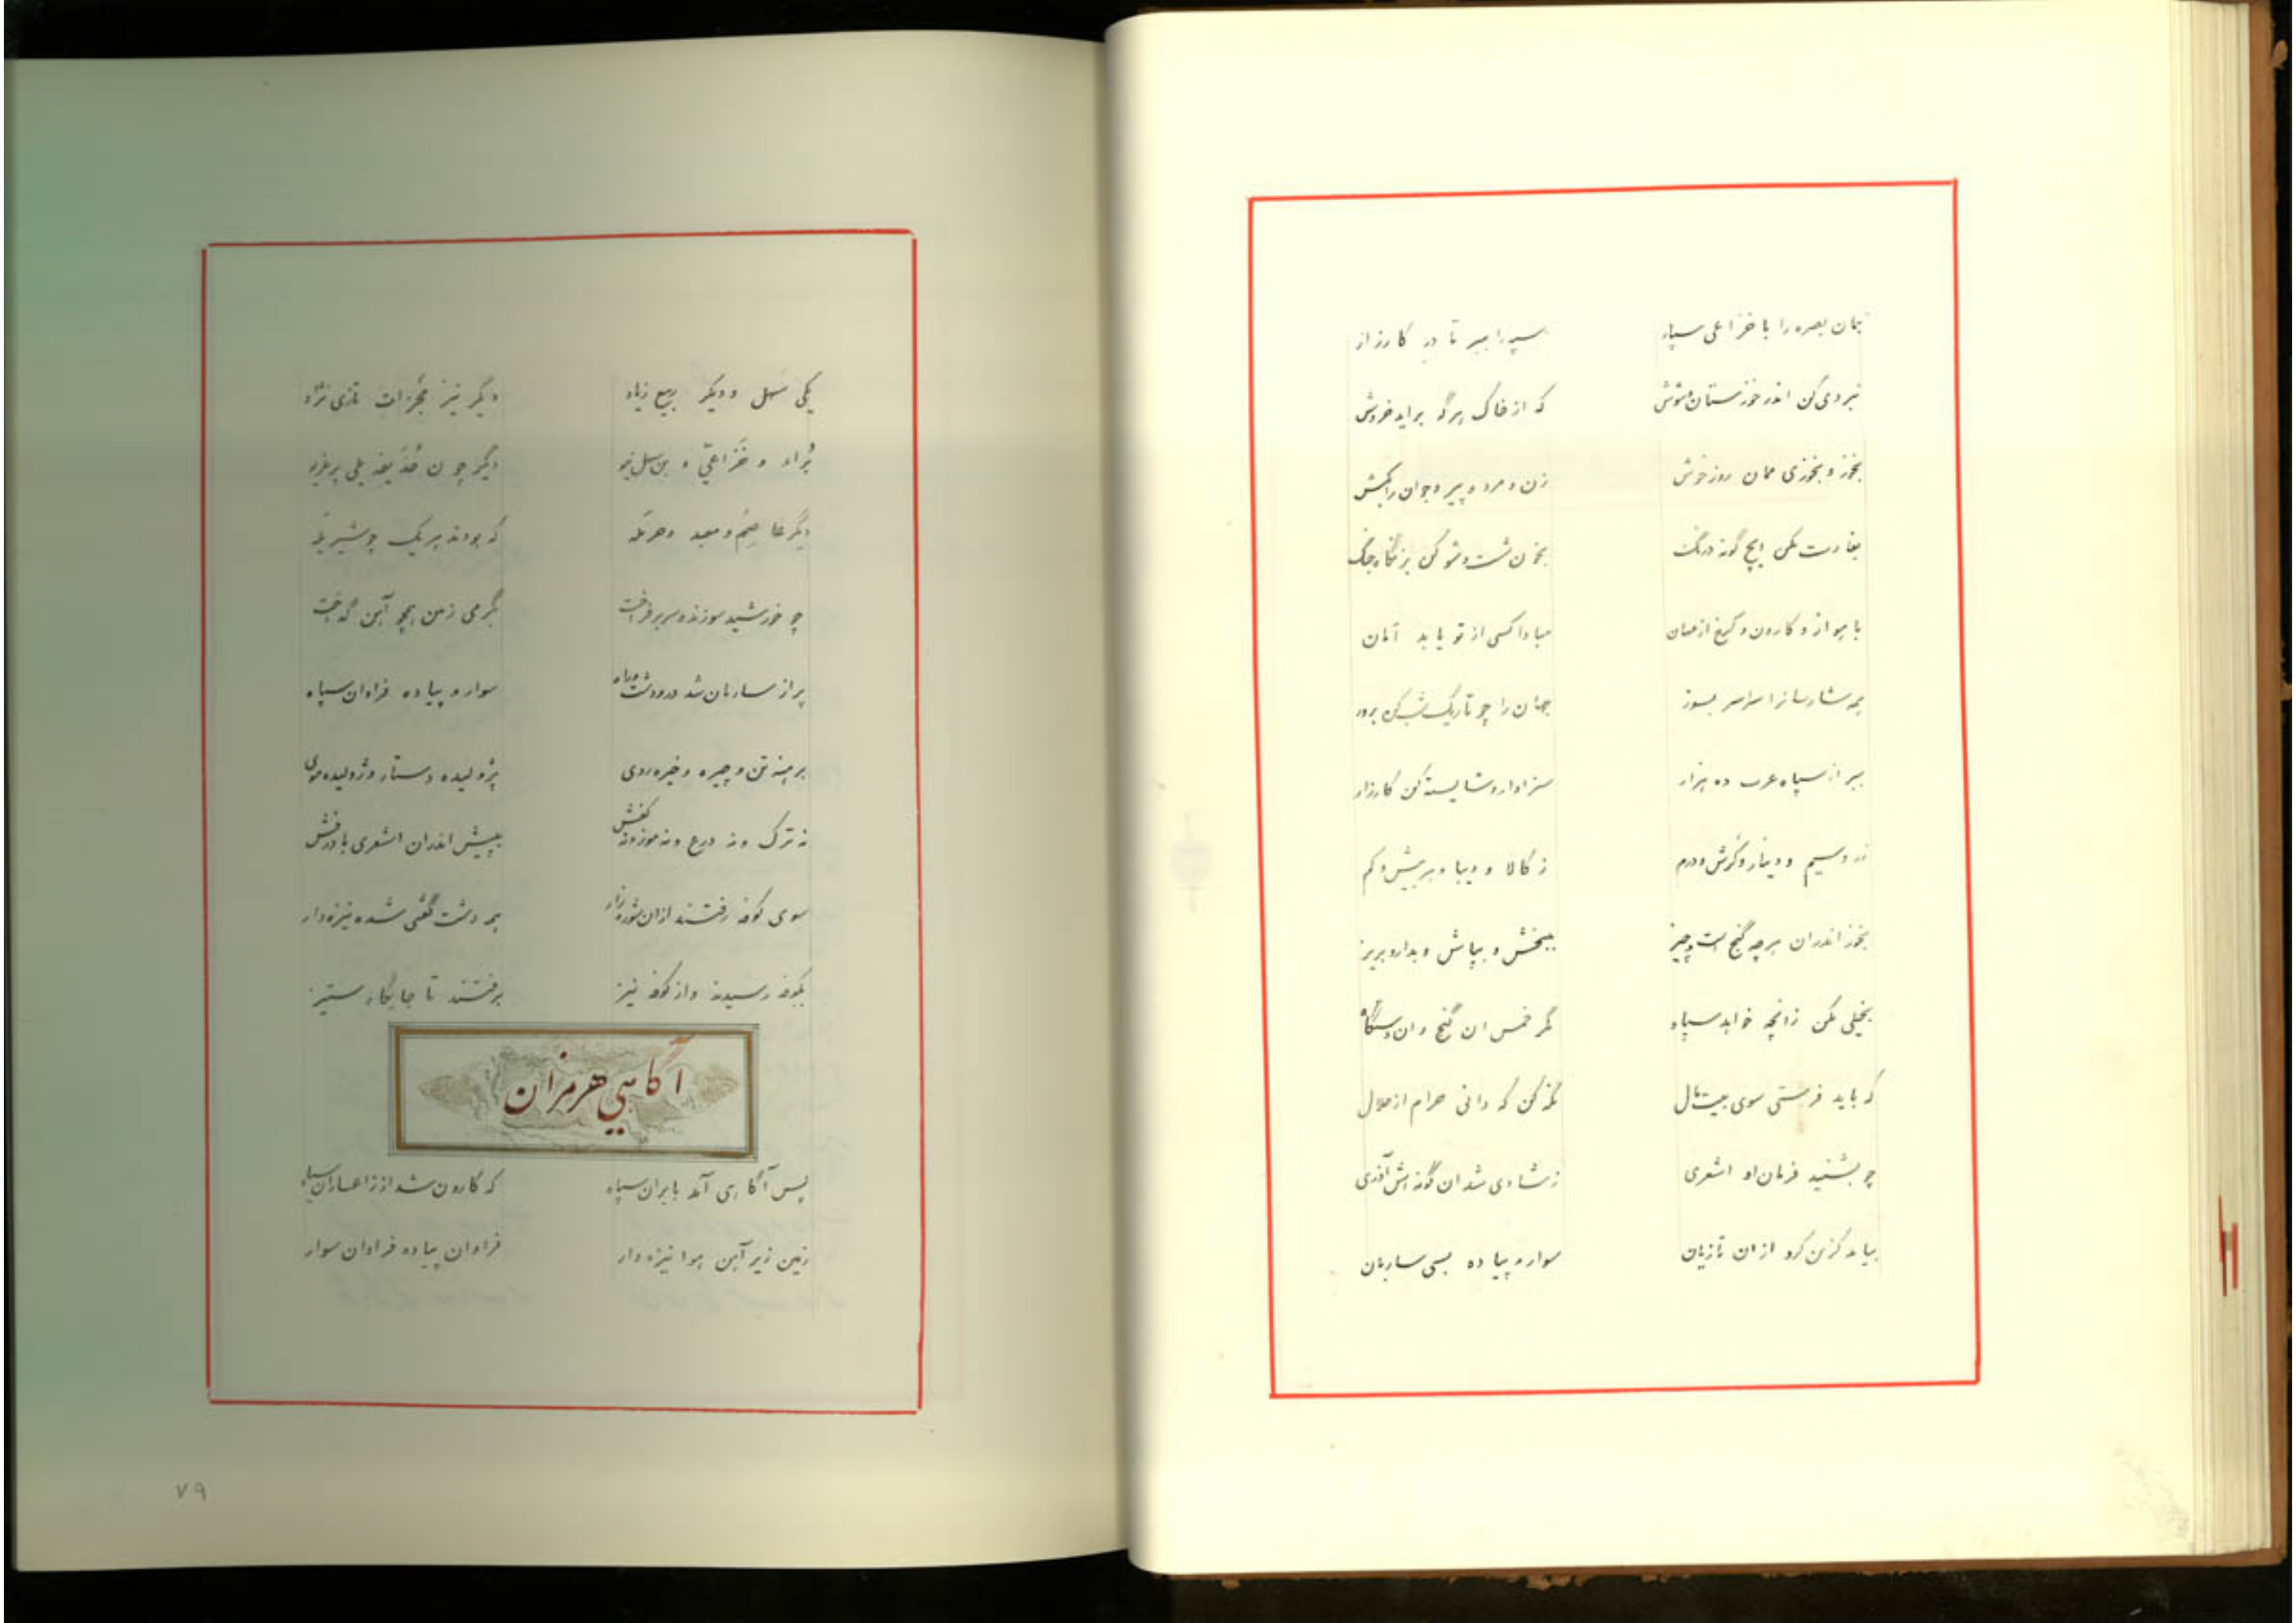 بمان بصره را با خزاعی سپاه سپه را ببر تا در کارزار
نبردی کن اندر خوزستان و شوش که از خاک هرگه براید خروش
بخوز و بخوزی ممان روز خوش زن و مرد و پیر و جوان را بکش
بغارت مکن ایچ گونه درنگ بخون شست و شو کن بزنگاه جنگ
باهواز و کارون و از میان مبادا کسی از تو یابد آمان
همه شارسانرا سراسر بسوز جهان را چو تاریک شب کن بروز
ببر از سپاه عرب ده هزار سزاوار و شایسته کن کارزار
زر و سیم و دینار و گرش و درم ز کالا و دیبا و هر بیش و کم
بخوز اندران هرچه گنج است و چیز ببخش و بپاش و بدار و بریز
بخیلی مکن زانچه خواهد سپاه مگر خمس ان گنج و ان دستگاه
که باید فرستی سوی بیت مال نگه کن که دانی حرام از حلال
چو بشنید فرمان او اشعری ز شادی شد ان گونه اش آذری
بیامد گزین کرد از ان تازیان سوار و پیاده بسی ساربان
یکی سهل و دیگر ربیع زیاد دیگر نیز مجزات تازی نژاد
بُراء و خُزاعیّ و بن سهل نیو دیگر چون حُذَیفه یلی
دیگر عاصِم و معبد و حرمله که بودند هر یک چو شیر یله
چو خورشید سوزنده سر برفراخت بگرمی زمین همچو آهن گداخت
پر از ساربان شد در و دشت و راه سوار و پیاده فراوان سپاه
برهنه تن و چیره و خیره روی پژولیده دستار و ژولیده موی
نه ترک و نه درع و نه موزه نه کفش بپیش اندران اشعری با درفش
سوی کوفه رفتند ازان شوره زار همه دشت گفتی شده نیزه دار
بکوفه رسیدند و از کوفه نیز برفتند تا جایگاه ستیز
آگاهی هرمزان
پس آگاهی آمد بایران سپاه که کارون شد از تازاعساران سیاه
زمین زیر آهن هوا نیزه دار فراوان پیاده فراوان سوار
۷۹